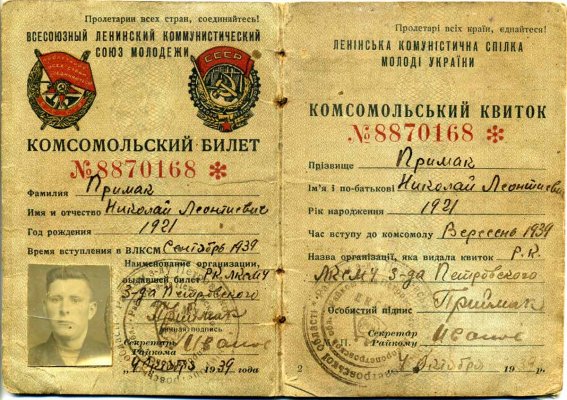 Пролетарии всех стран, соединяйтесь!
ВСЕСОЮЗНЫЙ ЛЕНИНСКИЙ КОММУНИСТИЧЕСКИЙ
СОЮЗ МОЛОДЕЖИ
СССР
КОМСОМОЛЬСКИЙ БИЛЕТ
№ 8870168 *
Фамилия Примак
Имя и отчество Николай Леонтиевич
Год рождения 1921
Время вступления в ВЛКСМ Сентябрь 1939
Наименование организации,
выдавшей билет РК ЛКСМУ
З-да Петровского
Приймак
Личная подпись
Секретарь
Райкома Иванов
1939 года
Пролетарі всіх країн, єднайтеся!
ЛЕНІНСЬКА КОМУНІСТИЧНА СПІЛКА
МОЛОДІ УКРАЇНИ
КОМСОМОЛЬСЬКИЙ КВИТОК
№ 8870168 *
Прізвище Примак
Ім'я і по-батькові Николай Леонтиевич
Рік народження 1921
Час вступу до комсомолу Вересень 1939
Назва організації, яка видала квиток Р.К.
ЛКСМУ З-да Петровского
Особистий підпис Приймак
М. П. Секретар
Райкому Иванов
4 Октября р.